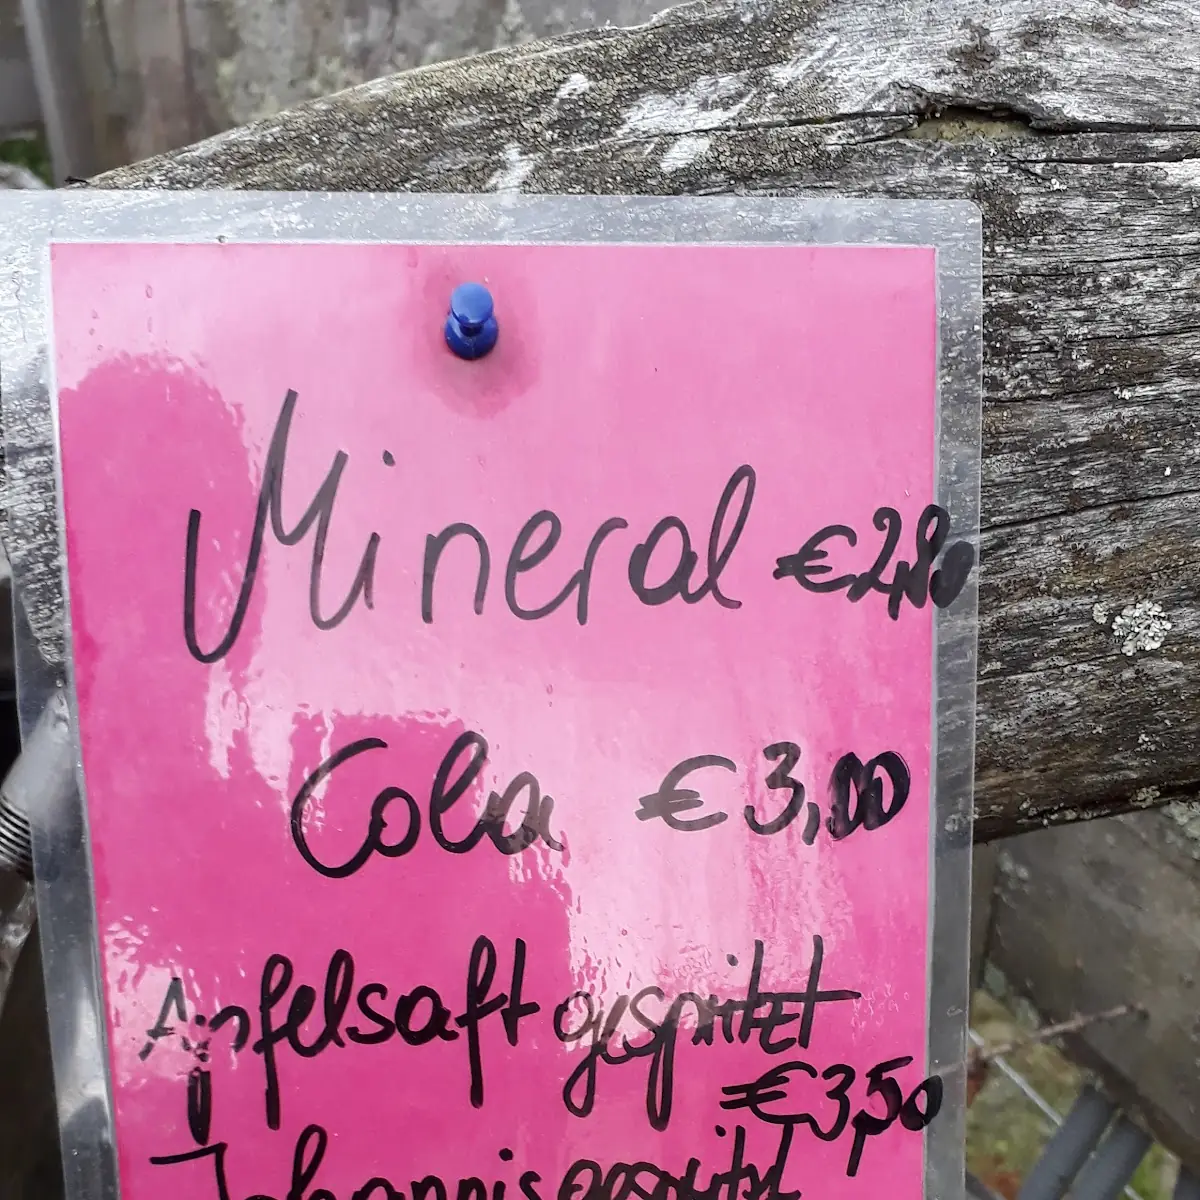 Mineral €2,80
Cola €3,00
Apfelsaft gespritzt
€3,50
Johannisgespritzt